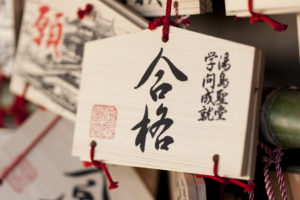 願
湯島聖堂
学問成就
合格